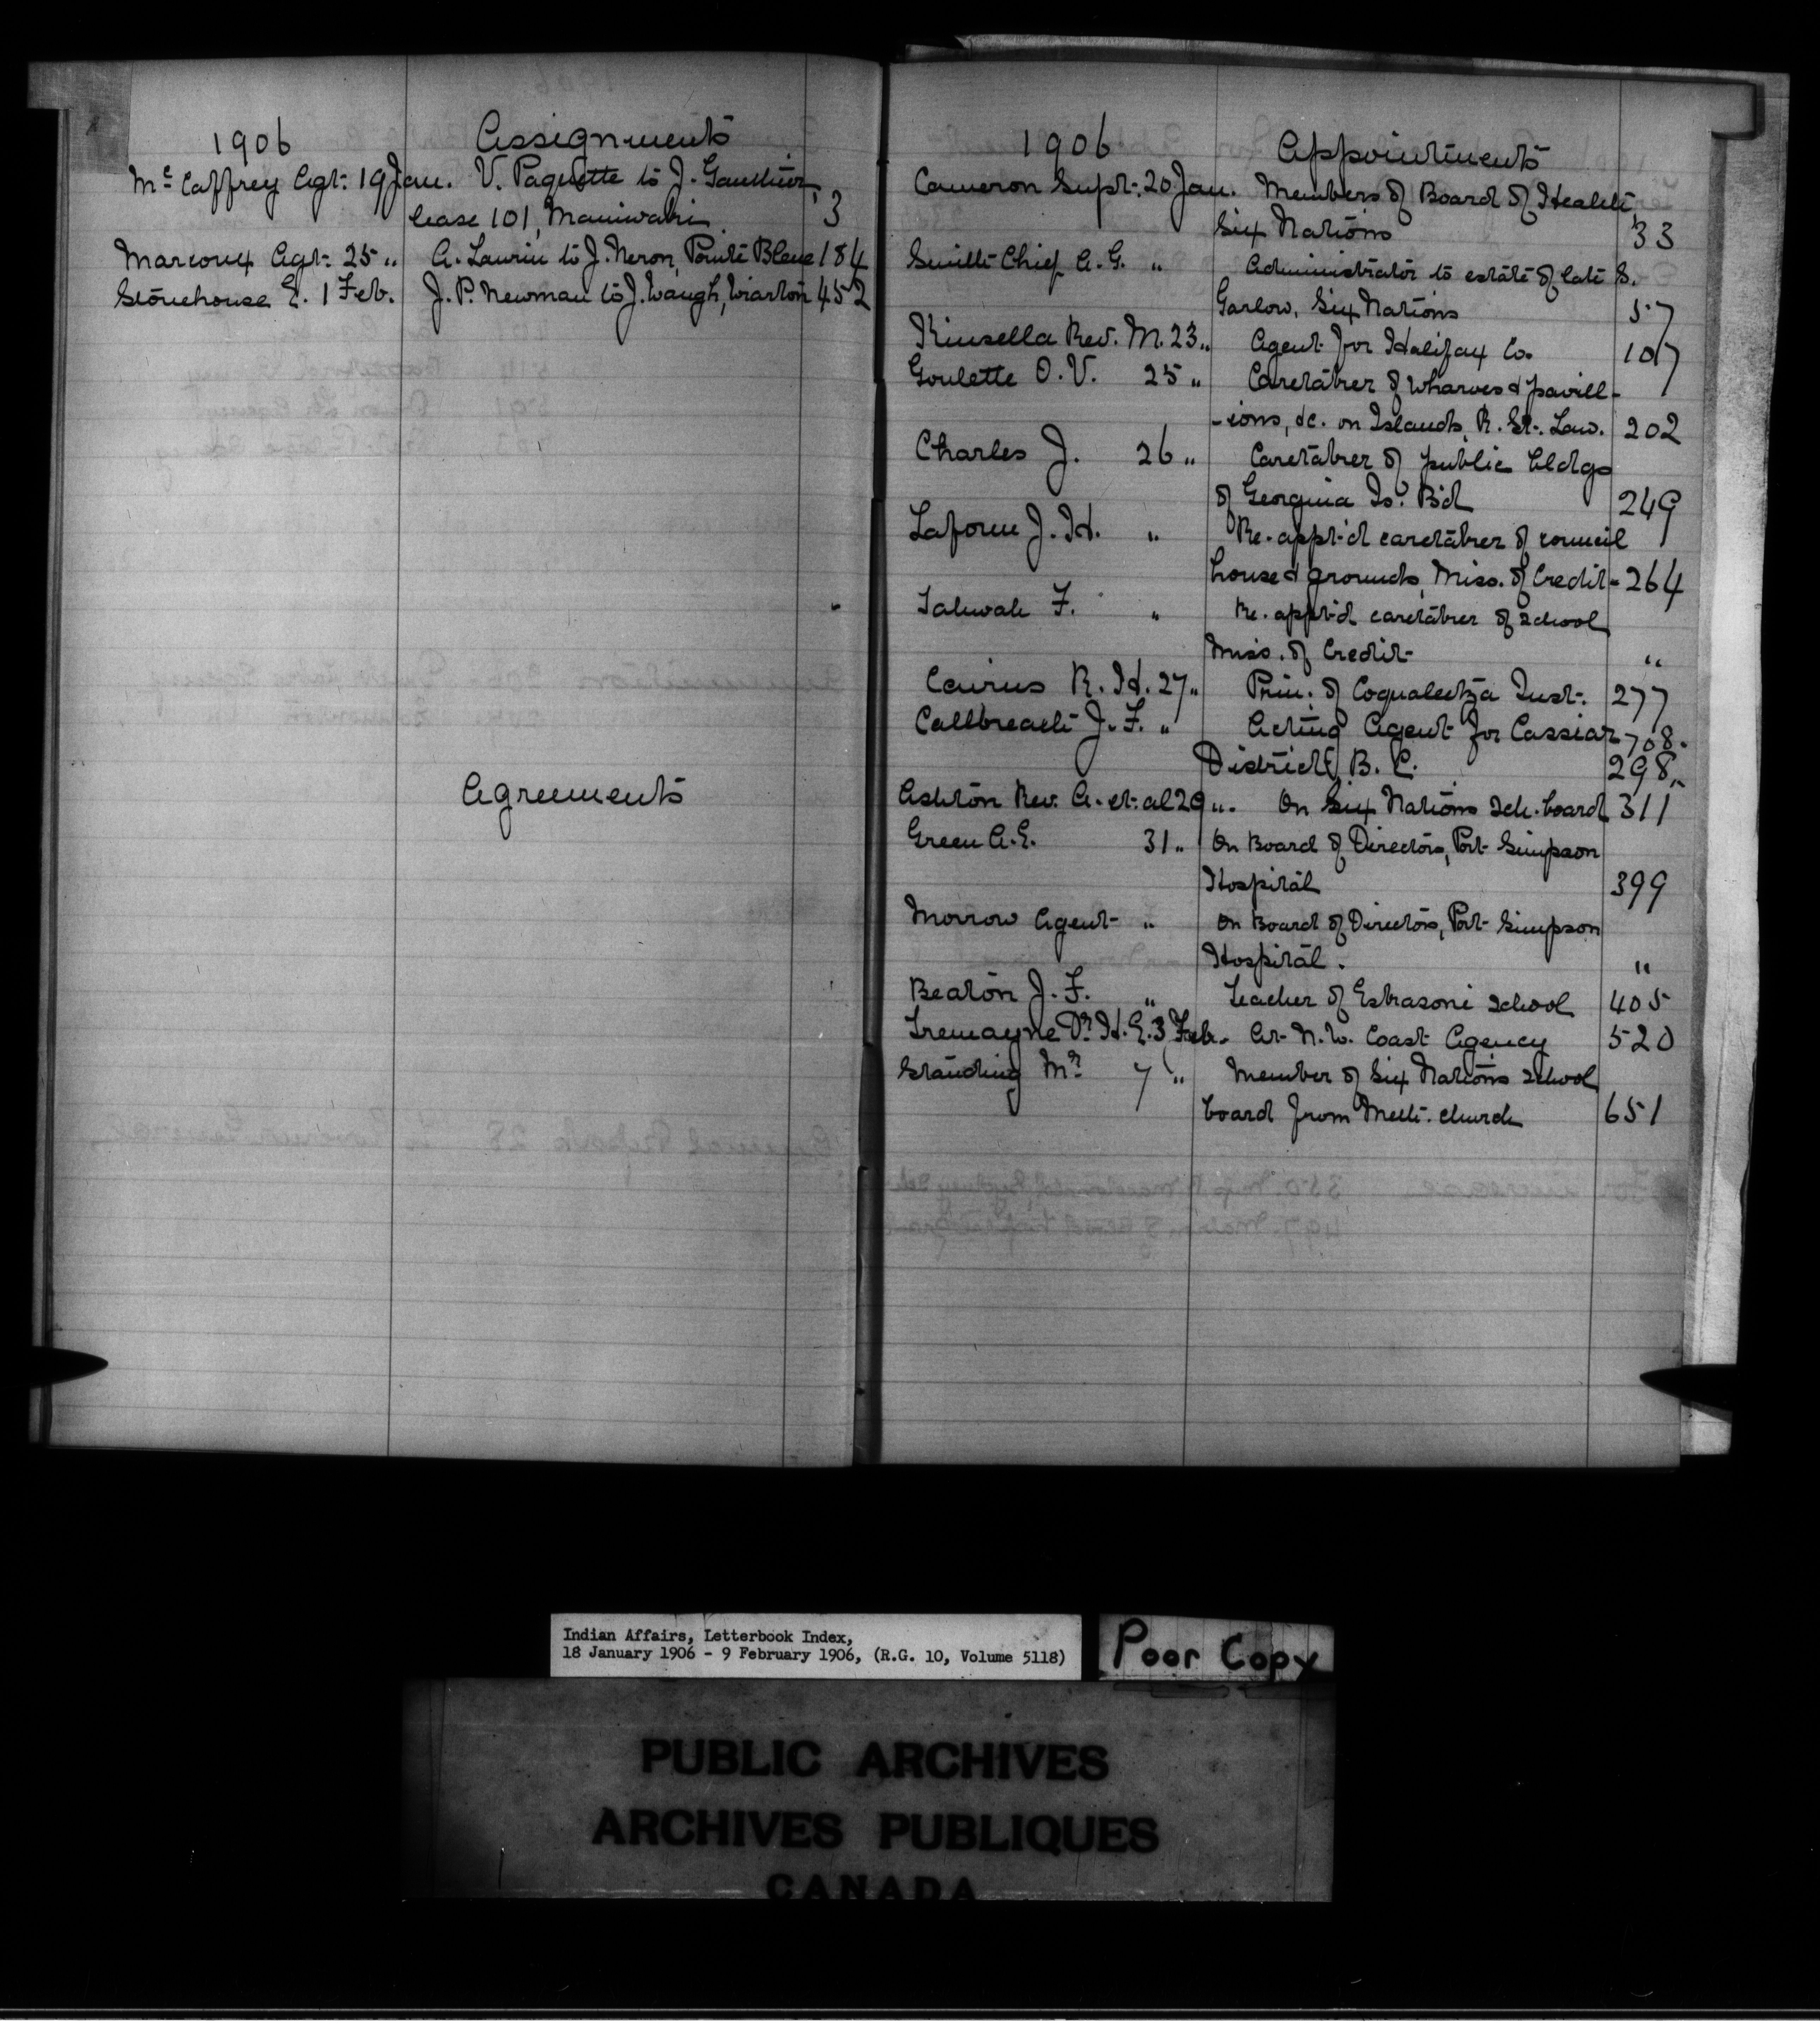 1906 Assignments
Mc Caffrey Agt. 19 Jan. V. Paquette to J. Gauthier,
lease 101, Maniwaki 3
Marcoux Agt. 25 " A. Laurin to J. Neron, Pointe Bleue 184
Stonehouse E. 1 Feb. J. P. Newman to J. Waugh, Wiarton 452
Agreements
1906 Appointments
Cameron Supt. 20 Jan. Members of Board of Health,
Six Nations 33
Smith Chief A. G. " Administrator to estate of late S.
Garlow, Six Nations 57
Kinsella Rev. M. 23 " Agent for Halifax Co. 107
Goulette O. V. 25 " Caretaker of wharves & pavill-
-ions, &c. on Islands, R. St. Law. 202
Charles J. 26 " Caretaker of public bldgs
of Georgina Is. B'd 249
Laform J. H. " Re-appt'd caretaker of council
house & grounds, Miss. of Credit 264
Tobicoe F. " Re-appt'd caretaker of school
Miss. of Credit "
Cairns R. H. 27 " Prin. of Coqualeetza Inst. 277
Callbreath J. F. " Acting Agent for Cassiar 708.
District, B. C. 298,
Ashton Rev. A. et. al 29 " On Six Nations Sch. board 311
Green A. E. 31 " On Board of Directors, Port Simpson
Hospital 399
Morrow Agent " On Board of Directors, Port Simpson
Hospital. "
Beaton J. F. " Teacher of Eskasoni School 405
Tremayne Dr. H. E. 3 Feb. At N. W. Coast Agency 520
Standing Mr. 7 " Member of Six Nations School
board from Meth. church 651
Indian Affairs, Letterbook Index,
18 January 1906 - 9 February 1906, (R.G. 10, Volume 5118)
Poor Copy
PUBLIC ARCHIVES
ARCHIVES PUBLIQUES
CANADA